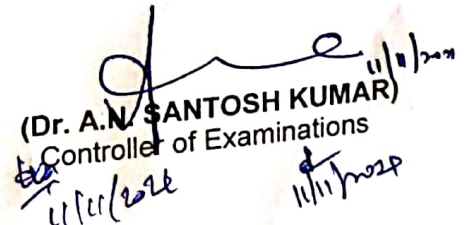 11/11/2024
(Dr. A.N. SANTOSH KUMAR)
Controller of Examinations
11/11/2024
11/11/2024